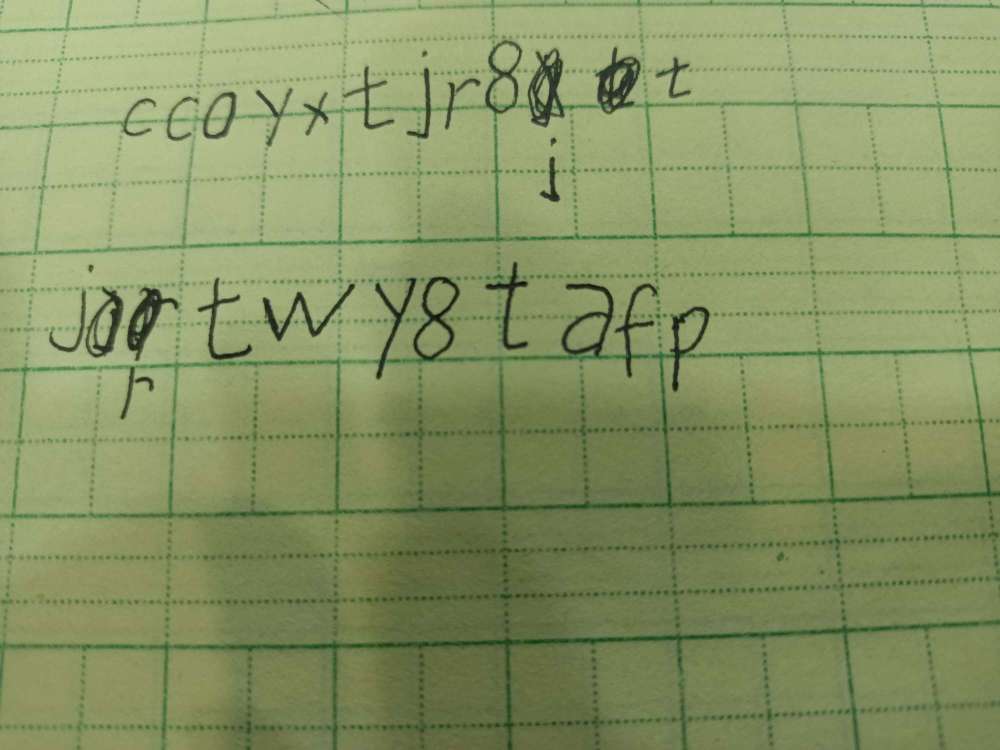 ccoyxtjr8jt
jrtwy8tafp